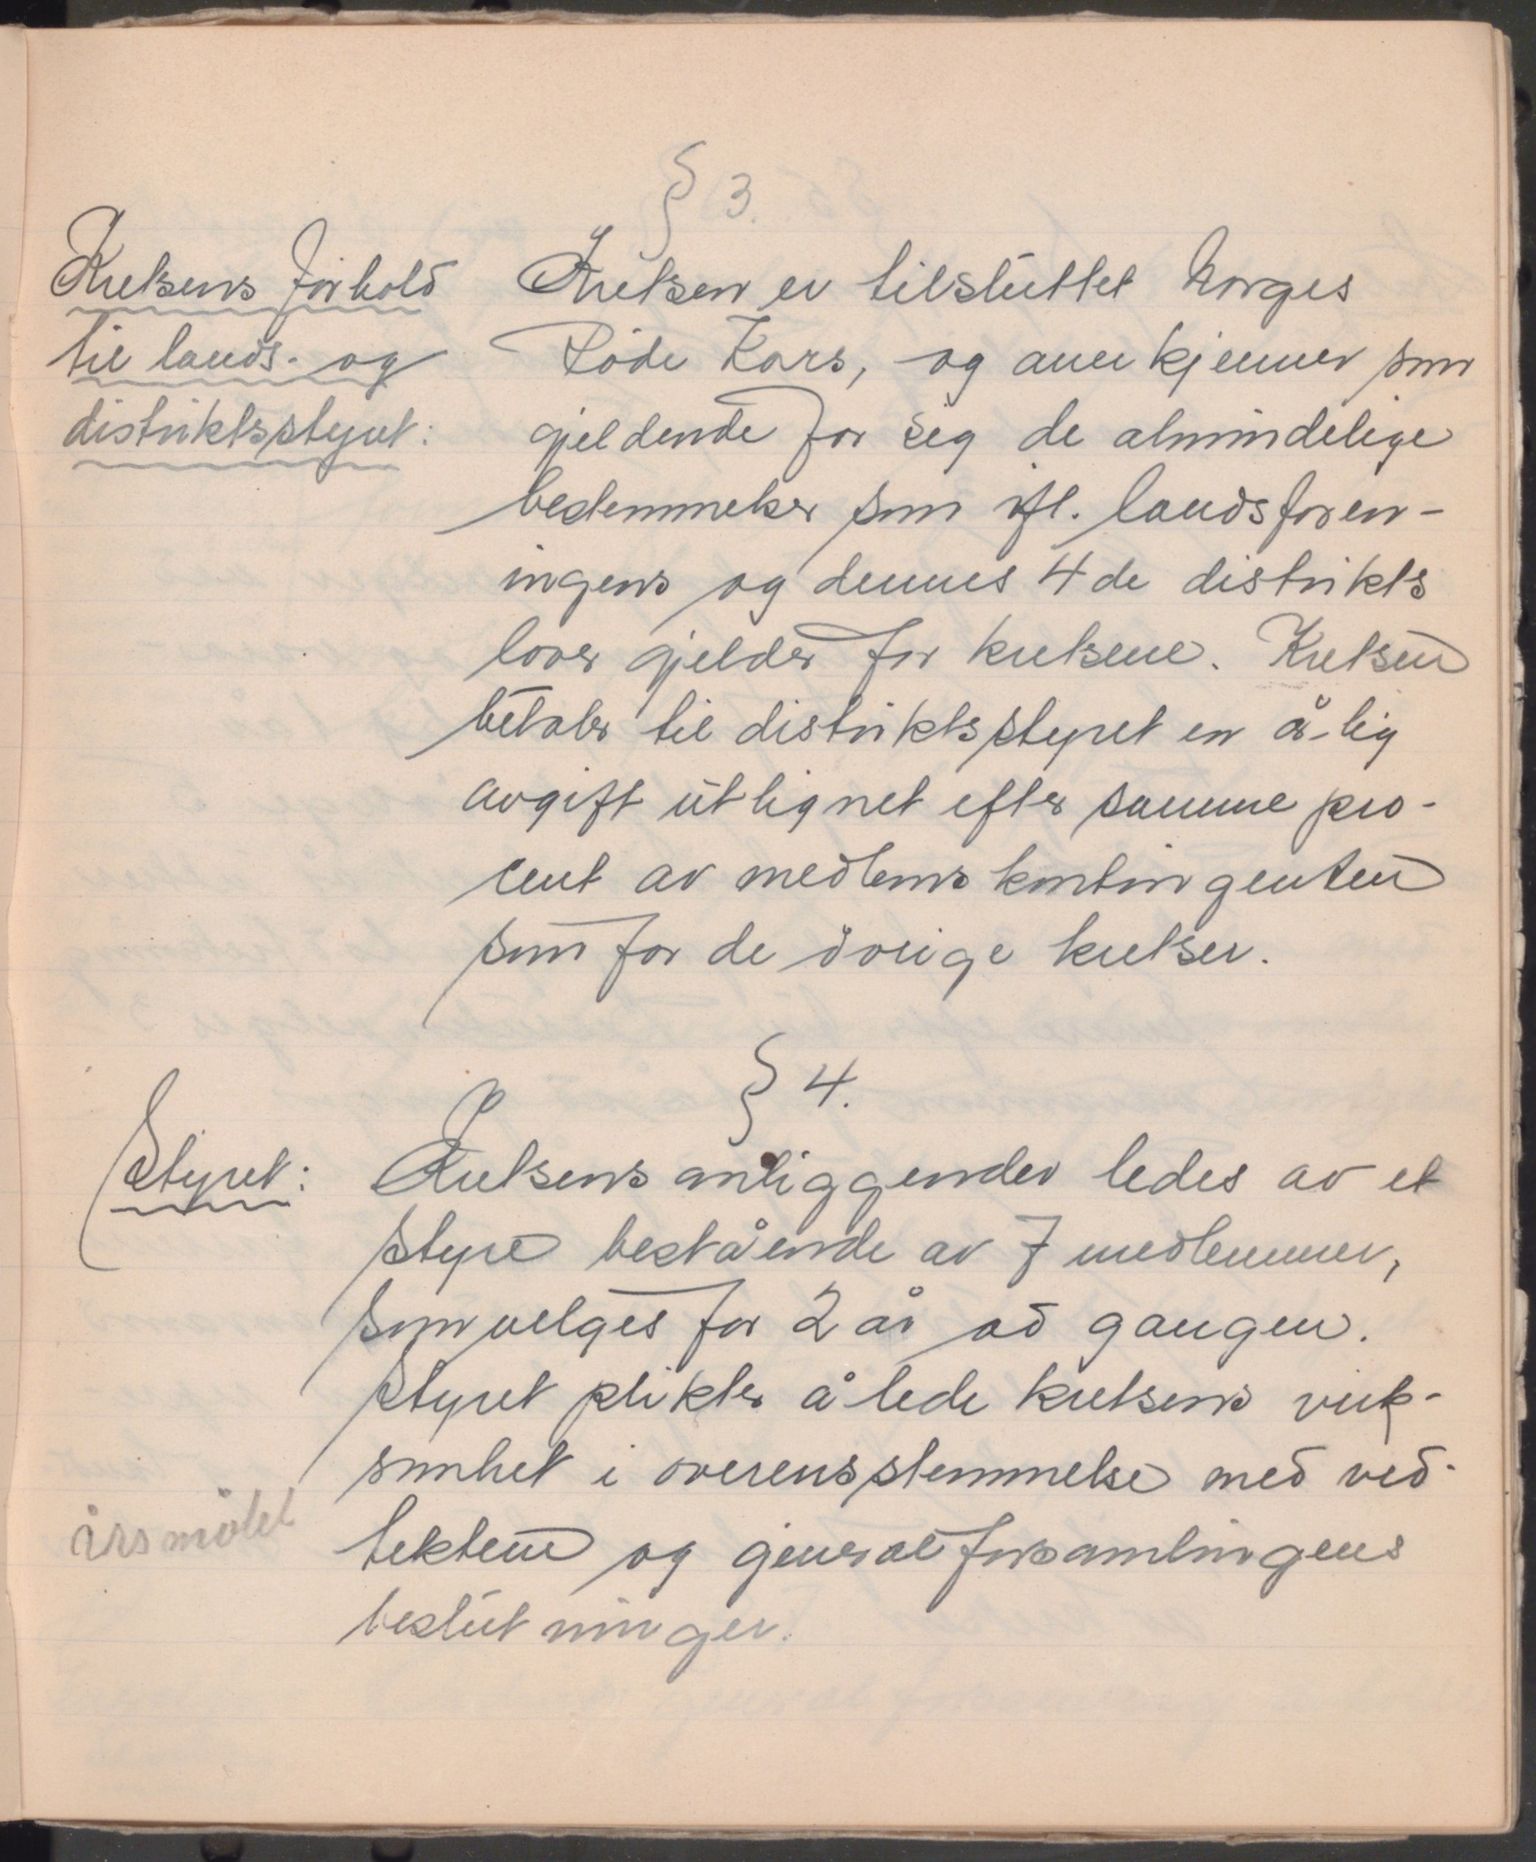 § 3.
Kretsens forhold
til lands- og
distriktsstyret:
Kretsen er tilsluttet Norges
Røde Kors, og anerkjenner som
gjeldende for seg de almindelige
bestemmelser som ifl. landsforen-
ingens og dennes 4de distrikts
lover gjelder for kretsene. Kretsen
betaler til distriktsstyret en årlig
avgift utlignet efter samme pro-
cent av medlemskontingenten
som for de øvrige kretser.
§ 4.
Styret:
Kretsens anliggender ledes av et
styre bestående av 7 medlemmer,
som velges for 2 år ad gangen.
Styret plikter å lede kretsens virk-
somhet i overensstemmelse med ved-
tektene og generalforsamlingens
beslutninger.
årsmøtet